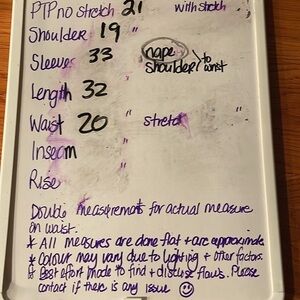 PTP no stretch 21 " with stretch
Shoulder 19 "
Sleeve 33 nape shoulder > to wrist
Length 32 "
Waist 20 " stretch "
Inseam "
Rise "
Double measurements for actual measure
on waist.
* All measures are done flat + are approximate
* Colour may vary due to lighting + other factors
* Best effort made to find + disclose flaws. Please
contact if there is any issue ☺